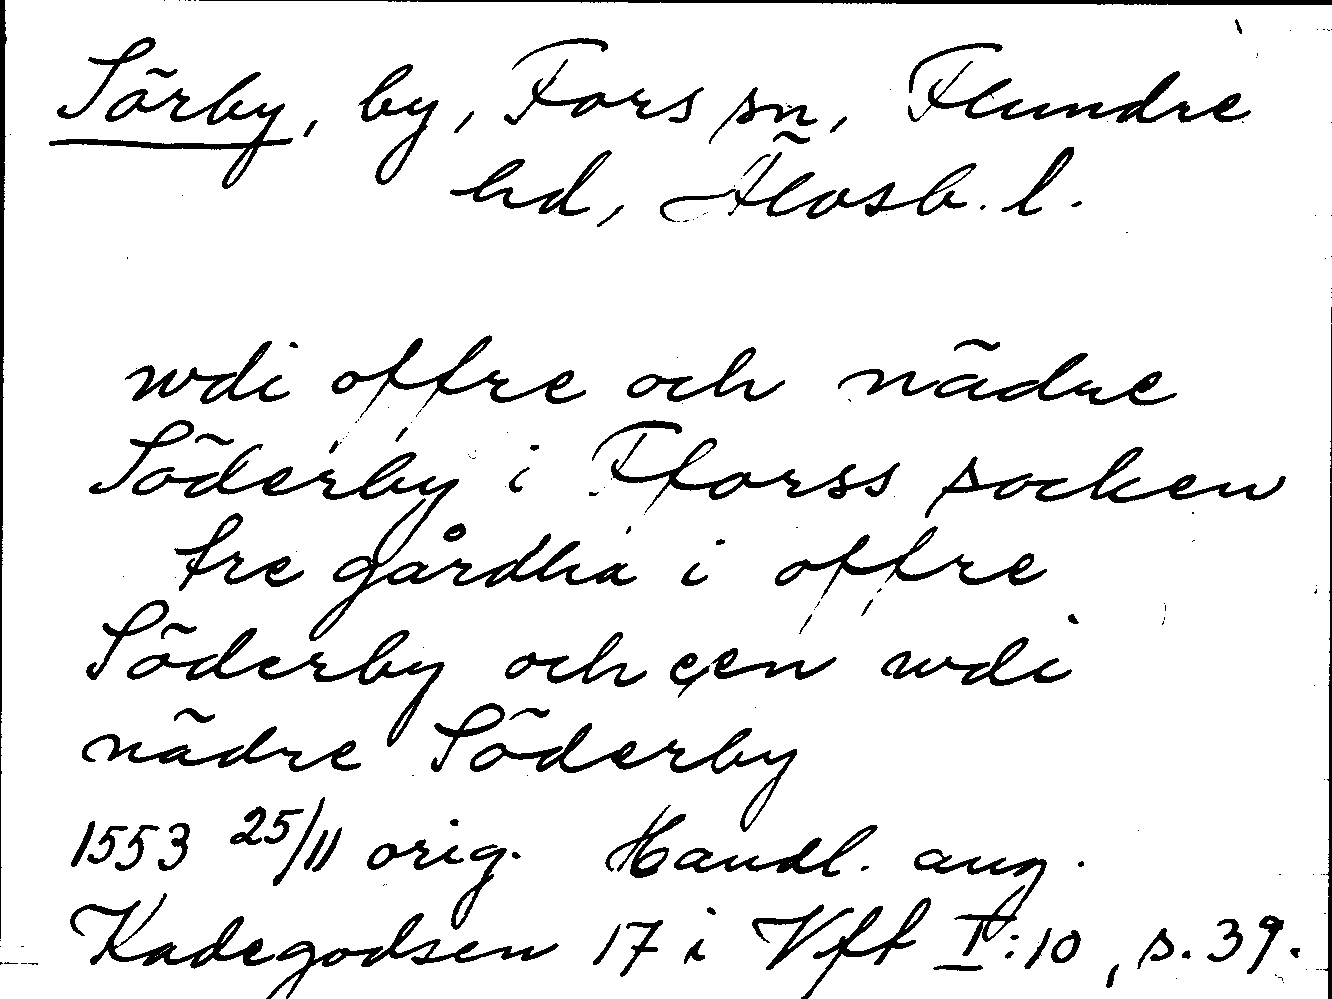 Sörby, by, Fors sn, Flundre
hd, Älvsb. l.
wdi offre och nädre
Söderby i Fforss socken
tre gårdha i offre
Söderby och een wdi
nädre Söderby
1553 25/11 orig. Handl. ang.
Kadegodsen 17 i Vfft I:10, s. 39.